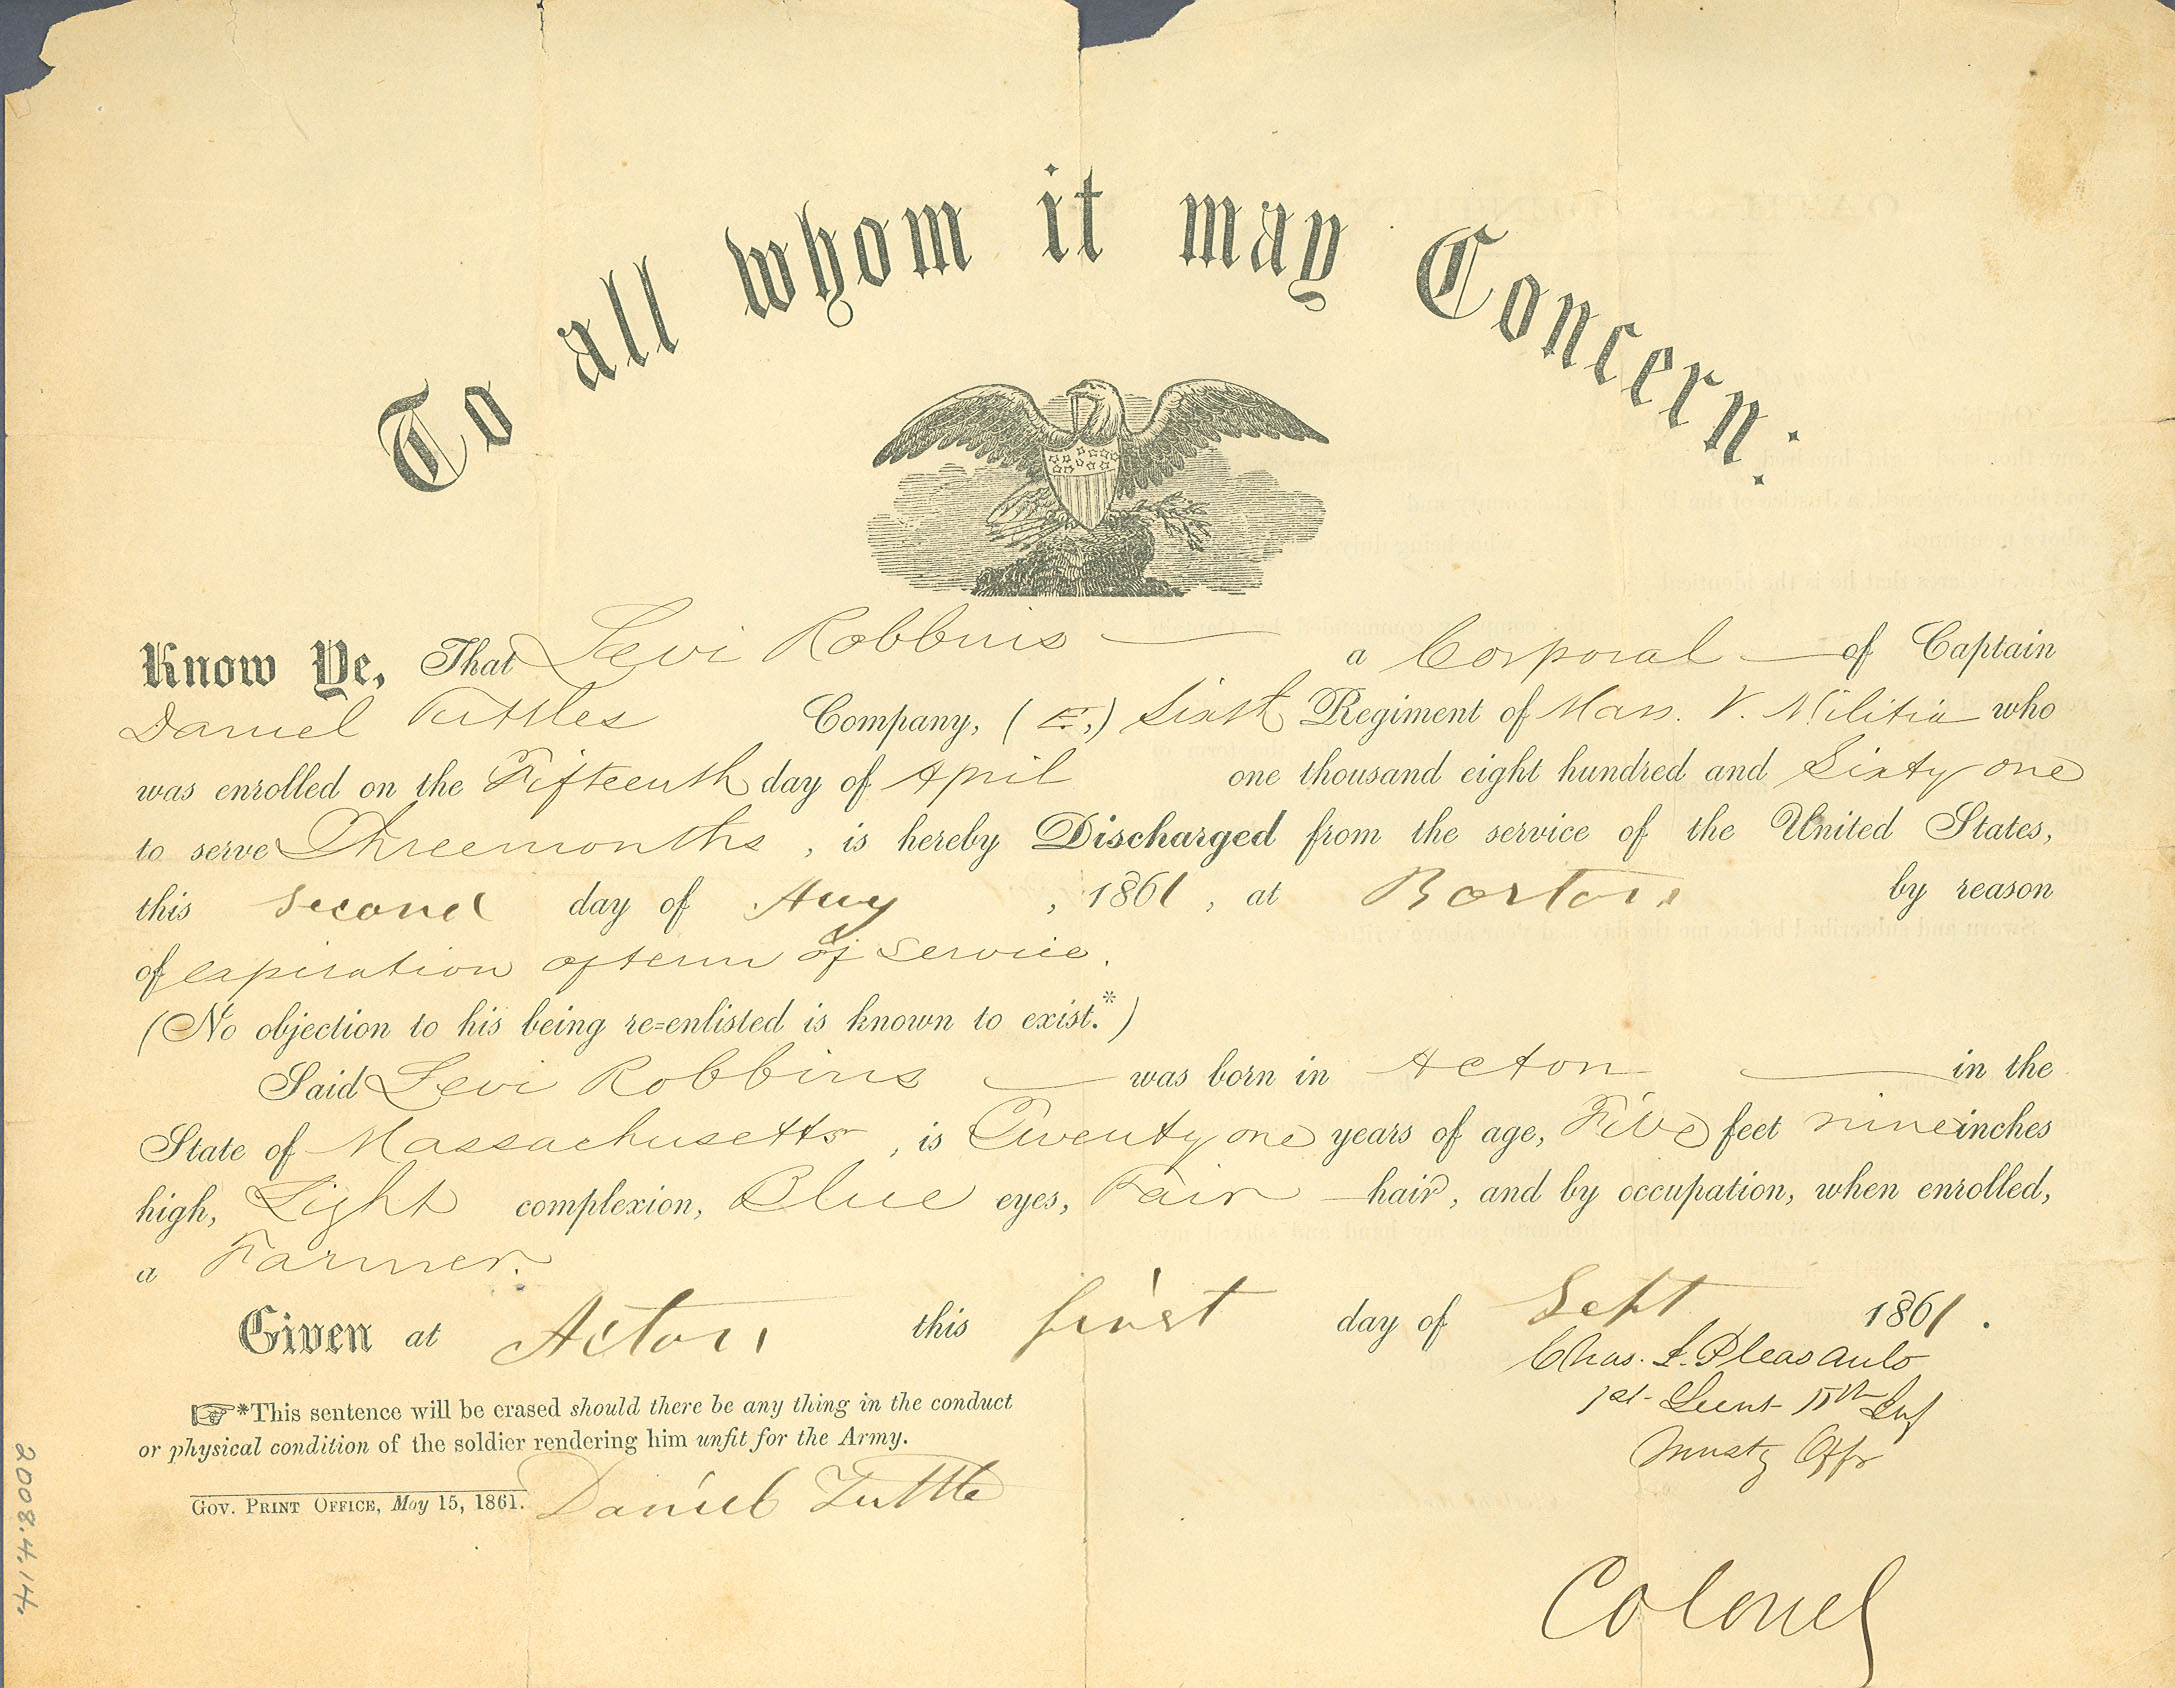 To all whom it may Concern:
Know Ye, That Levi Robbins a Corporal of Captain
Daniel Tuttles Company, (E,) Sixth Regiment of Mass. V. Militia who
was enrolled on the Fifteenth day of April one thousand eight hundred and Sixty one
to serve Three months, is hereby Discharged from the service of the United States,
this second day of Aug, 1861, at Boston by reason
of expiration of term of service.
(No objection to his being re=enlisted is known to exist.*)
Said Levi Robbins was born in Acton in the
State of Massachusetts, is Twenty one years of age, Five feet nine inches
high, Light complexion, Blue eyes, Fair hair, and by occupation, when enrolled,
a Farmer.
Given at Acton this first day of Sept 1861.
Chas. J. Pleasants
1st Lieut 11th Inf
Mustg Offr
☞*This sentence will be erased should there be any thing in the conduct
or physical condition of the soldier rendering him unfit for the Army.
Gov. Print Office, May 15, 1861.
Daniel Tuttle
Colonel
2008.4.14.